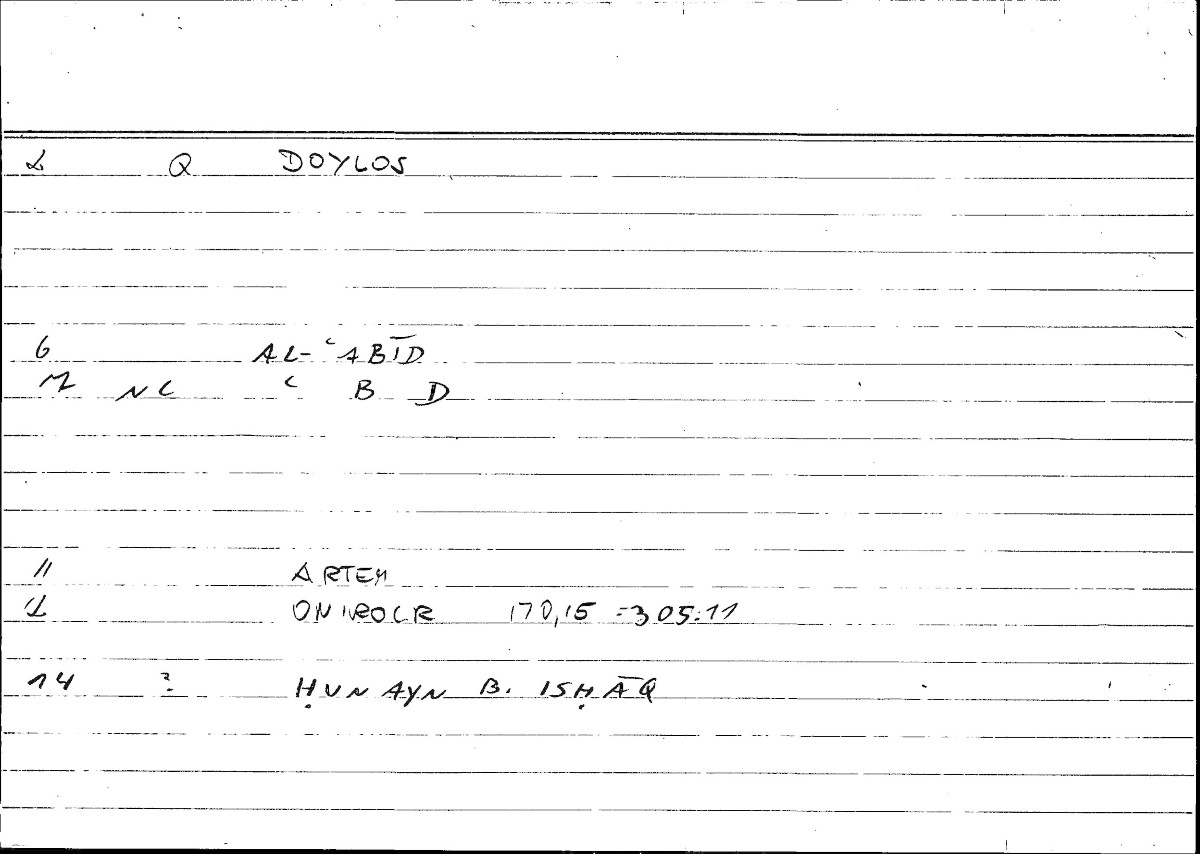 2 Q DOYLOS
6 AL-ʿABĪD
7 NC ʿ B D
11 ARTEM
12 ONIROCR 170,15 =305:11
14 ? ḤUNAYN B. ISḤĀQ